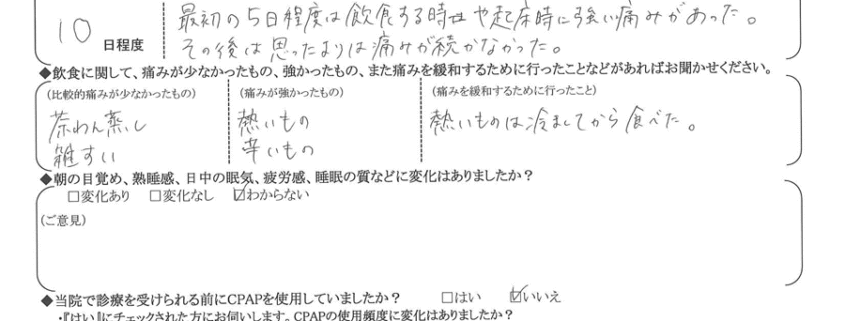 最初の5日程度は飲食する時や起床時に強い痛みがあった。
10日程度 その後は思ったよりは痛みが続かなかった。
◆飲食に関して、痛みが少なかったもの、強かったもの、また痛みを緩和するために行ったことなどがあればお聞かせください。
(比較的痛みが少なかったもの) (痛みが強かったもの) (痛みを緩和するために行ったこと)
茶わん蒸し 熱いもの 熱いものは冷ましてから食べた。
雑すい 辛いもの
◆朝の目覚め、熟睡感、日中の眠気、疲労感、睡眠の質などに変化はありましたか？
☐変化あり ☐変化なし ☑わからない
(ご意見)
◆当院で診療を受けられる前にCPAPを使用していましたか？ ☐はい ☑いいえ
・『はい』にチェックされた方にお伺いします。CPAPの使用頻度に変化はありましたか？